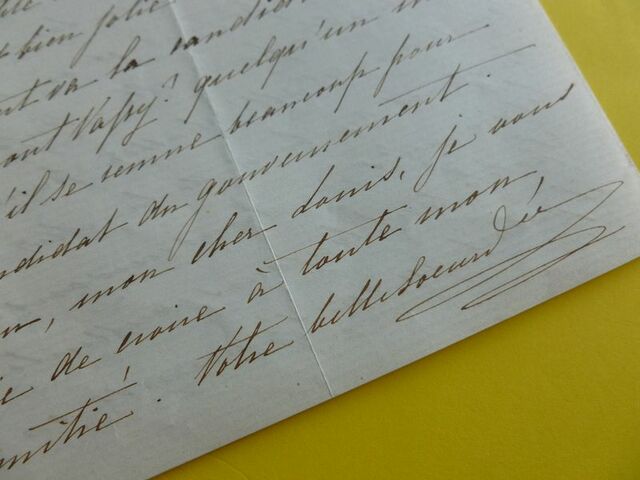 bien jolie
va la candid
quelqu'un m
il se remue beaucoup pour
ndidat du gouvernement.
mon cher Louis, je vous
ie de croire à toute mon
mitié. Votre belle Soeur